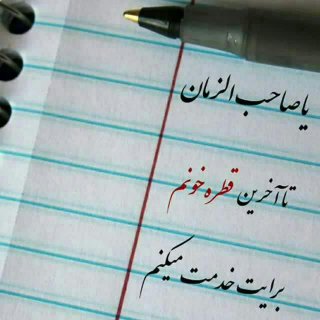 یا صاحب الزمان
تا آخرین قطره خونم
برایت خدمت میکنم